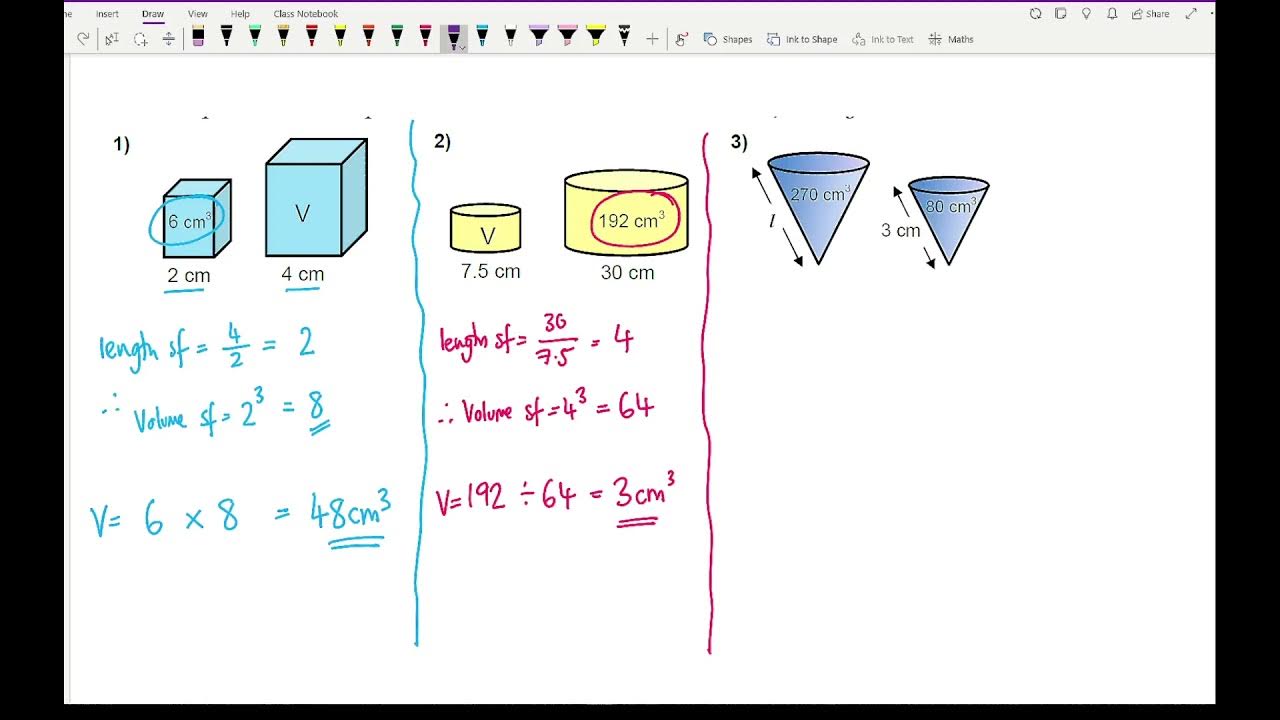 Insert Draw View Help Class Notebook Share
Shapes Ink to Shape Ink to Text Maths
1)
6 cm³
V
2 cm
4 cm
length sf = 4/2 = 2
∴ Volume sf = 2³ = 8
V = 6 × 8 = 48cm³
2)
V
192 cm³
7.5 cm
30 cm
length sf = 30/7.5 = 4
∴ Volume sf = 4³ = 64
V = 192 ÷ 64 = 3cm³
3)
270 cm³
l
80 cm³
3 cm